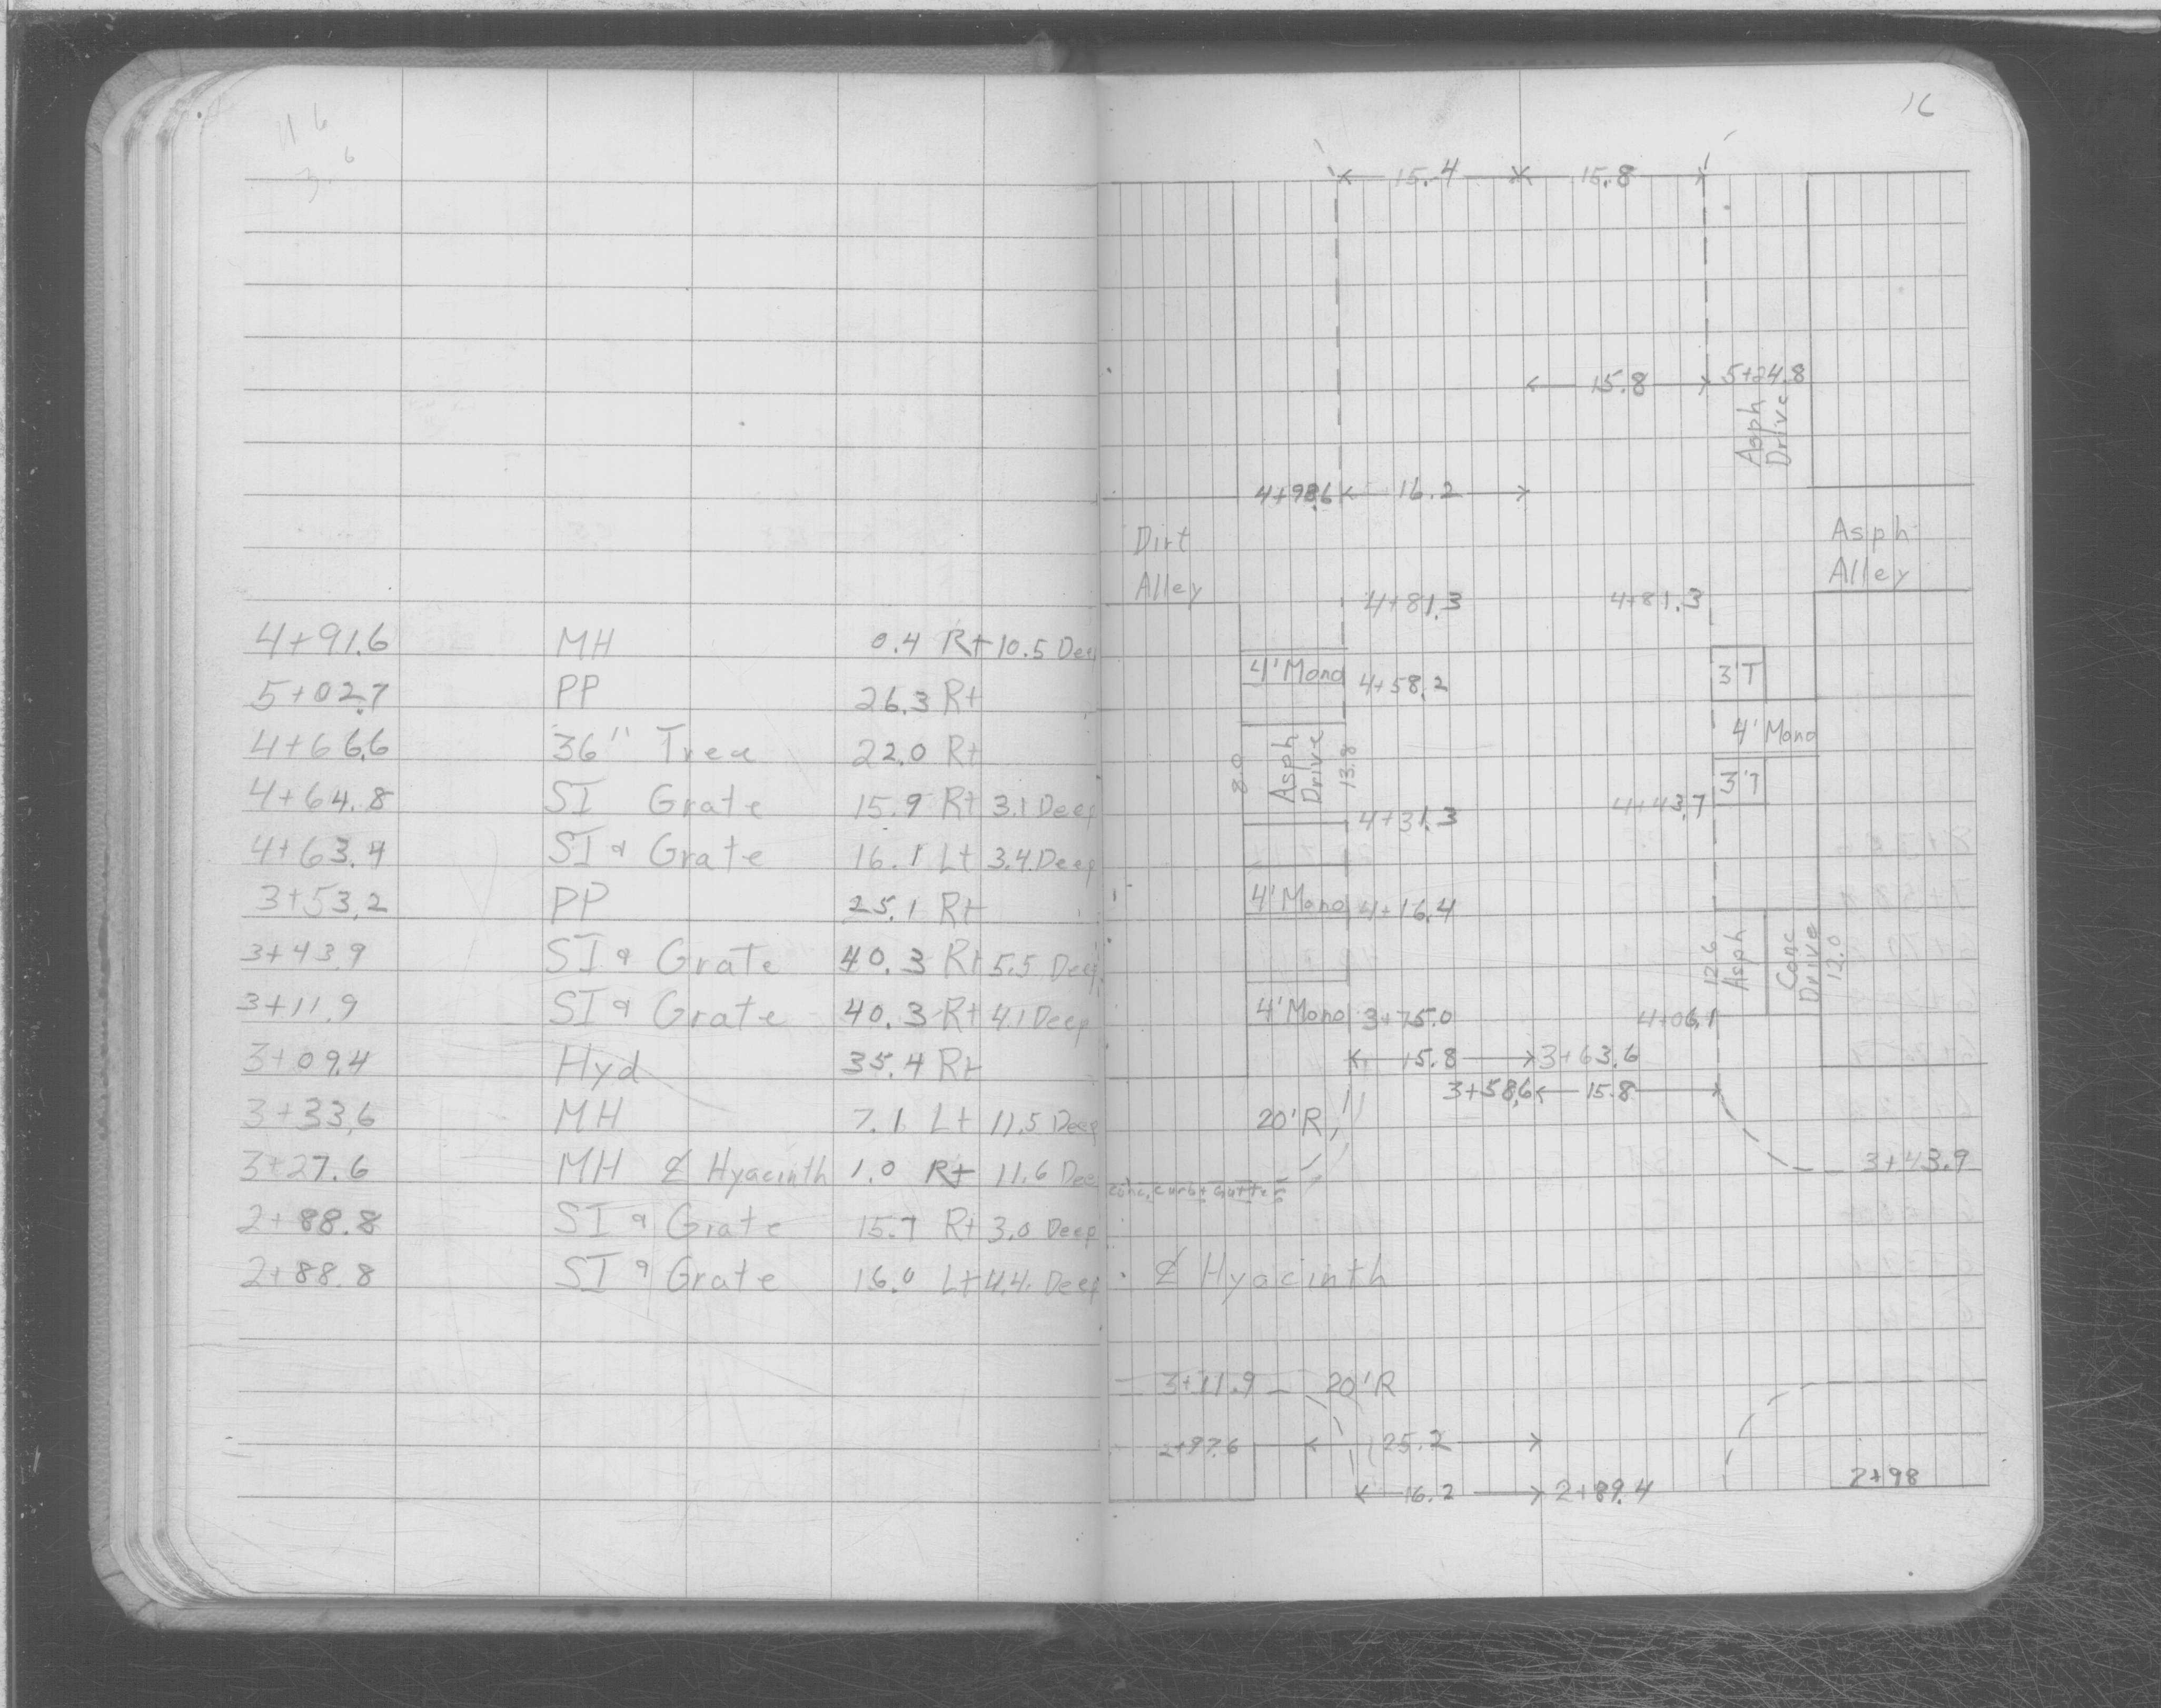 11.6
3.6
4+91.6 MH 0.4 Rt 10.5 Deep
5+02.7 PP 26.3 Rt
4+66.6 36" Tree 22.0 Rt
4+64.8 SI Grate 15.9 Rt 3.1 Deep
4+63.4 SI & Grate 16.1 Lt 3.4 Deep
3+53.2 PP 25.1 Rt
3+43.9 SI & Grate 40.3 Rt 5.5 Deep
3+11.9 SI & Grate 40.3 Rt 4.1 Deep
3+09.4 Hyd 35.4 Rt
3+33.6 MH 7.1 Lt 11.5 Deep
3+27.6 MH ℄ Hyacinth 1.0 Rt 11.6 Dee
2+88.8 SI & Grate 15.7 Rt 3.0 Deep
2+88.8 SI & Grate 16.0 Lt 4.4 Deep
16
15.4 15.8
15.8 5+24.8
Asph
Drive
16.2
Dirt
Alley
Asph
Alley
4+81.3 4+81.3
4' Mono 4+58.2 3'T
4' Mono
8.0 Asph Drive 13.8 3'T
4+31.3 4+43.7
4' Mono 4+16.4
12.6 Asph Conc Drive 12.0
4' Mono 3+75.0 4+06.1
15.8 3+63.6
3+58.6 15.8
20'R
3+43.9
conc. curb + Gutter
℄ Hyacinth
3+11.9 20'R
2+97.6 25.2
16.2 2+89.4 2+98